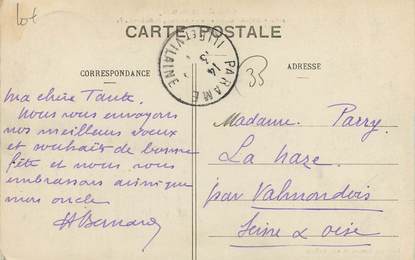 lot
CARTE POSTALE
CORRESPONDANCE
ADRESSE
PARAMÉ
ILLE-ET-VILAINE
14
33
Ma chère Tante.
Nous vous envoyons
nos meilleurs vœux
et souhaits de bonne
fête et nous vous
embrassons ainsi que
mon oncle
H Bernard
Madame Parry
La naze
par Valmondois
Seine & oise